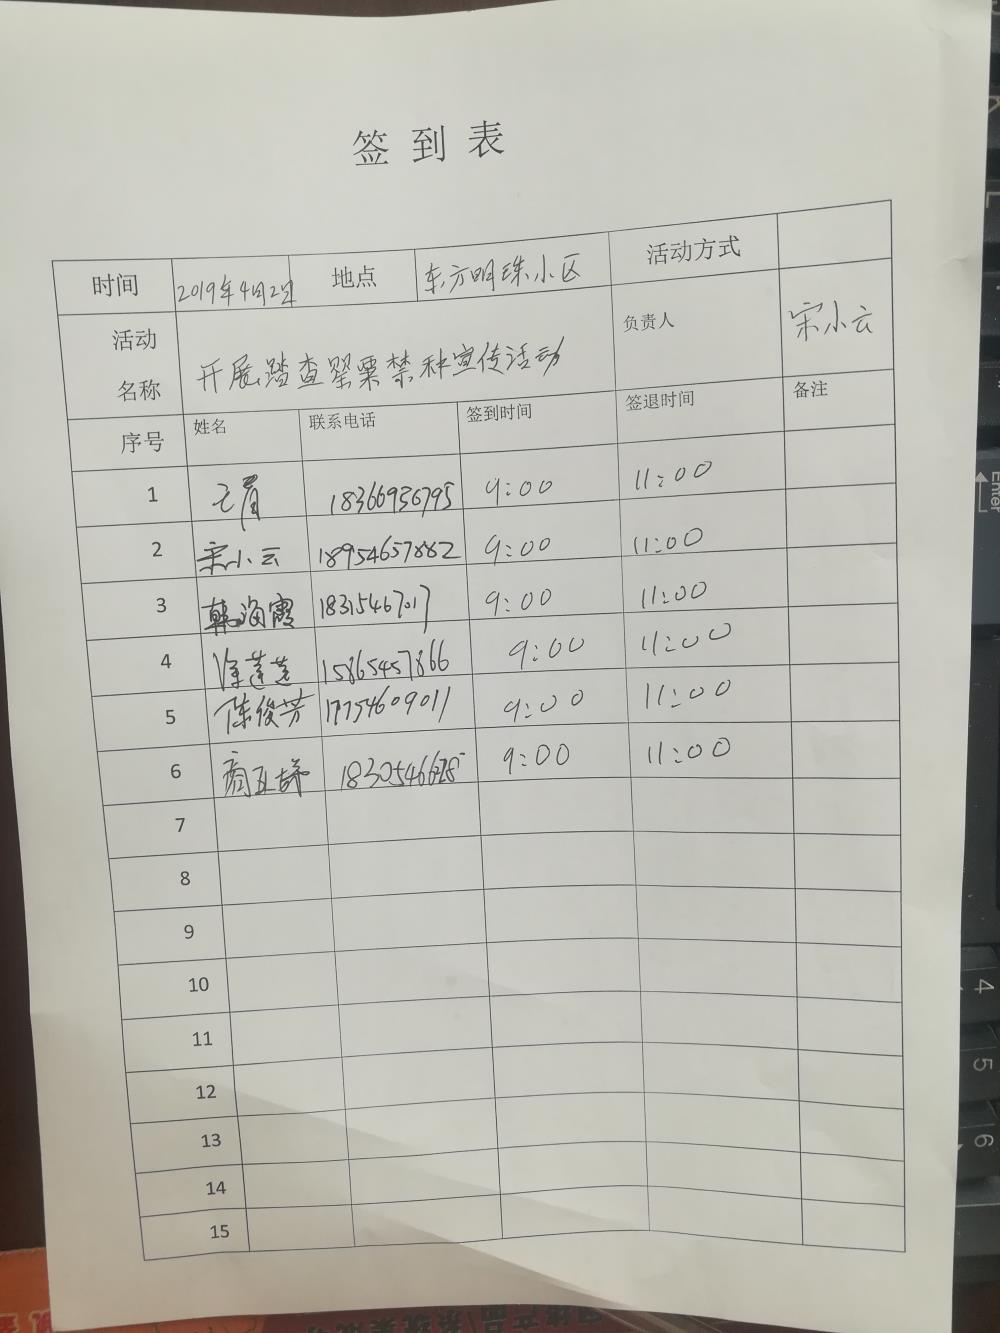 签到表
时间 2019年4月2日 地点 东方明珠小区 活动方式
活动名称 开展踏查罂粟禁种宣传活动 负责人 宋小云
序号 姓名 联系电话 签到时间 签退时间 备注
1 18366936795 9:00 11:00
2 宋小云 18954657882 9:00 11:00
3 韩海霞 18315467017 9:00 11:00
4 徐莲莲 15865457866 9:00 11:00
5 陈俊芳 17754609011 9:00 11:00
6 9:00 11:00
7
8
9
10
11
12
13
14
15
Enter
4
5
6